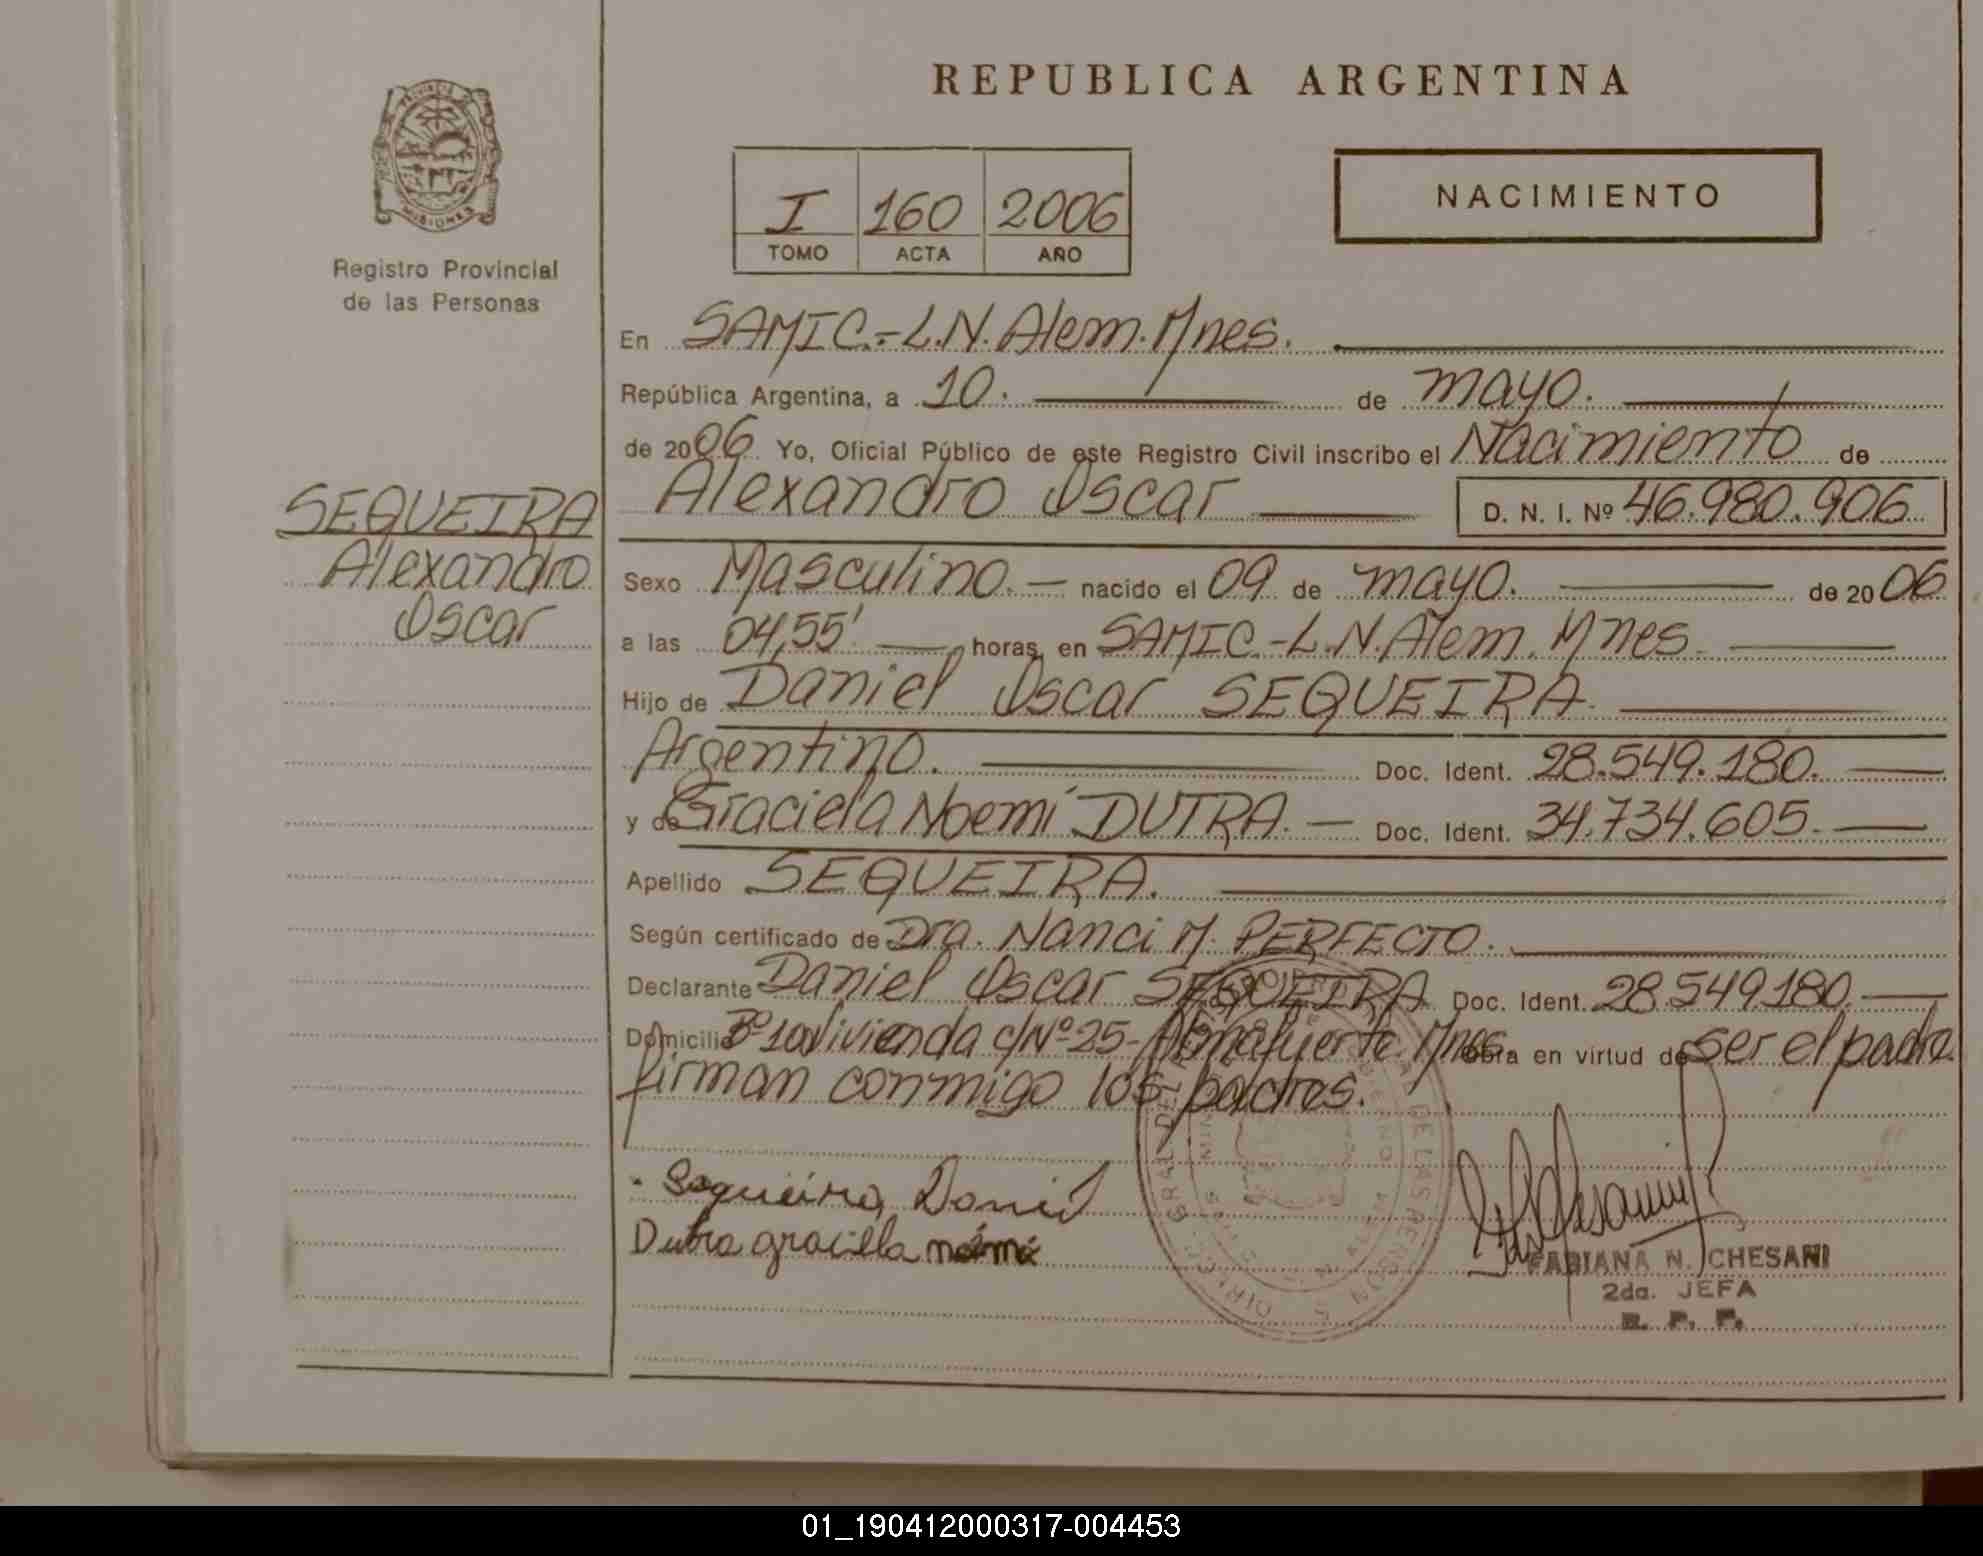 REPUBLICA ARGENTINA
PROVINCIA DE
MISIONES
Registro Provincial
de las Personas
I 160 2006
TOMO ACTA AÑO
NACIMIENTO
En SAMIC.-L.N. Alem. Mnes.
República Argentina, a 10. de mayo.
de 2006 Yo, Oficial Público de este Registro Civil inscribo el Nacimiento de
Alexandro Oscar D. N. I. Nº 46.980.906
SEQUEIRA
Alexandro
Oscar
Sexo Masculino.- nacido el 09 de mayo. de 2006
a las 04,55' horas, en SAMIC.-L.N. Alem. Mnes.
Hijo de Daniel Oscar SEQUEIRA.
Argentino. Doc. Ident. 28.549.180.
y de Graciela Noemí DUTRA.- Doc. Ident. 34.734.605.
Apellido SEQUEIRA.
Según certificado de Dra. Nanci M. PERFECTO.
Declarante Daniel Oscar SEQUEIRA Doc. Ident. 28.549.180.
Domicilio Bº 10 Vivienda c/Nº 25- Almafuerte. Mnes. Obra en virtud de ser el padre.
firman conmigo los padres.
Sequeira Daniel
Dutra graciela
FABIANA N. CHESANI
2da. JEFA
R. P. P.
01_190412000317-004453